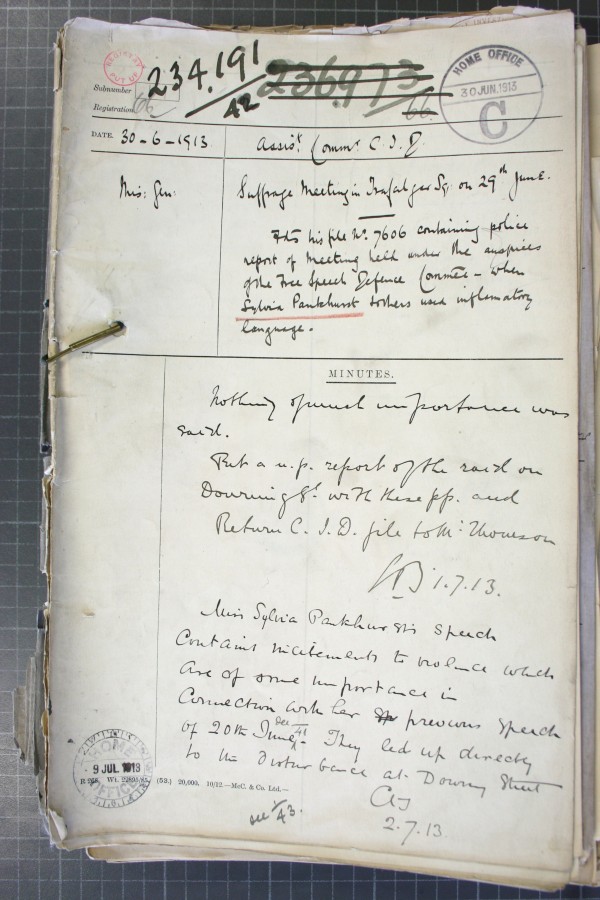 REGISTRY
234,191
236,973
HOME OFFICE
30 JUN. 1913
C
Subnumber
Registration
66
42
66.
DATE. 30-6-1913
Assist. Commr. C. I. D.
Mis: Gen:
Suffrage Meeting in Trafalgar Sq. on 29th June.
Fds his file No. 7606 containing police
report of meeting held under the auspices
of the Free Speech Defence Commtee – when
Sylvia Pankhurst & others used inflamatory
language.
MINUTES.
Nothing of much importance was
said.
Put a n.p. report of the raid on
Downing St. with these pp. and
Return C. I. D. file to Mr. Thomson
1.7.13.
Miss Sylvia Pankhursts speech
contains incitements to violence which
are of some importance in
connection with her previous speech
of 20th June see /41. They led up directly
to the disturbance at Downing Street
2.7.13.
see /43.
HOME OFFICE
9 JUL. 1913
(53.) 20,000. 10/12.—McC. & Co. Ltd.—